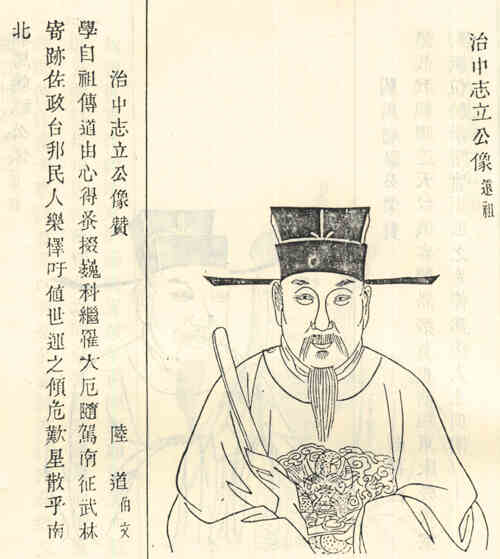 治中志立公像 遠祖
治中志立公像贊 陸道 伯文
學自祖傳道由心得蚤掇巍科繼罹大厄隨駕南征武林
寄跡佐政台邦民人樂懌吁值世運之傾危歎星散乎南
北